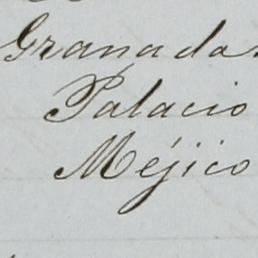 Granada
Palacio
Méjico